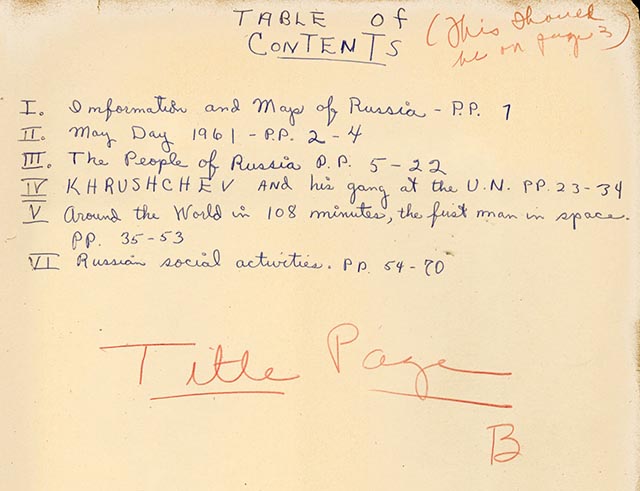 TABLE OF
CONTENTS
(This should
be on page 3)
I. Information and Map of Russia - P.P. 1
II. May Day 1961 - P.P. 2 - 4
III. The People of Russia P.P. 5 - 22
IV KHRUSHCHEV AND his gang at the U.N. PP. 23 - 34
V Around the World in 108 minutes, the first man in space.
PP. 35 - 53
VI Russian social activities. PP. 54 - 70
Title Page
B